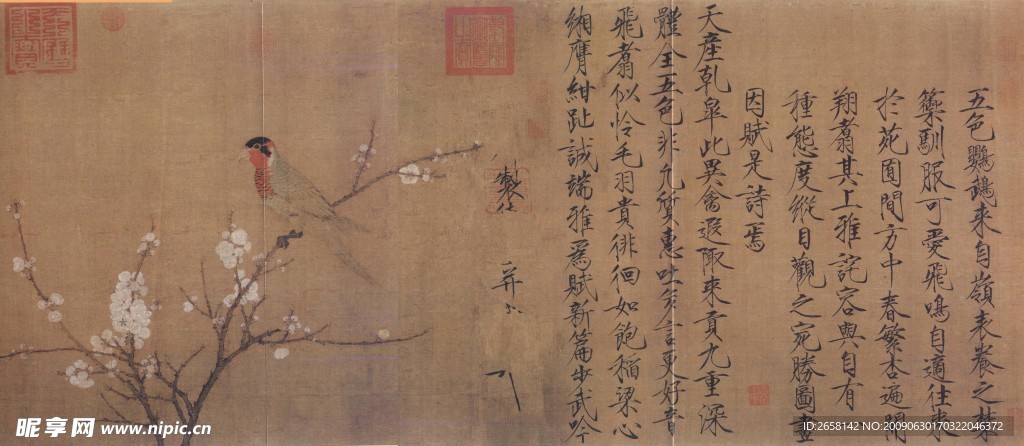 五色鸚鵡來自嶺表養之禁
籞馴服可愛飛鳴自適往來
於苑囿間方中春繁杏遍開
翔翥其上雅詫容與自有
種態度縱目觀之宛勝圖畫
因賦是詩焉
天產乾皋此異禽遐陬來貢九重深
體全五色非凡質惠吐多言更好音
飛翥似憐毛羽貴徘徊如飽稻粱心
緗膺紺趾誠端雅為賦新篇步武吟
製
并
昵享网 www.nipic.cn
ID:2658142 NO:20090630170322046372